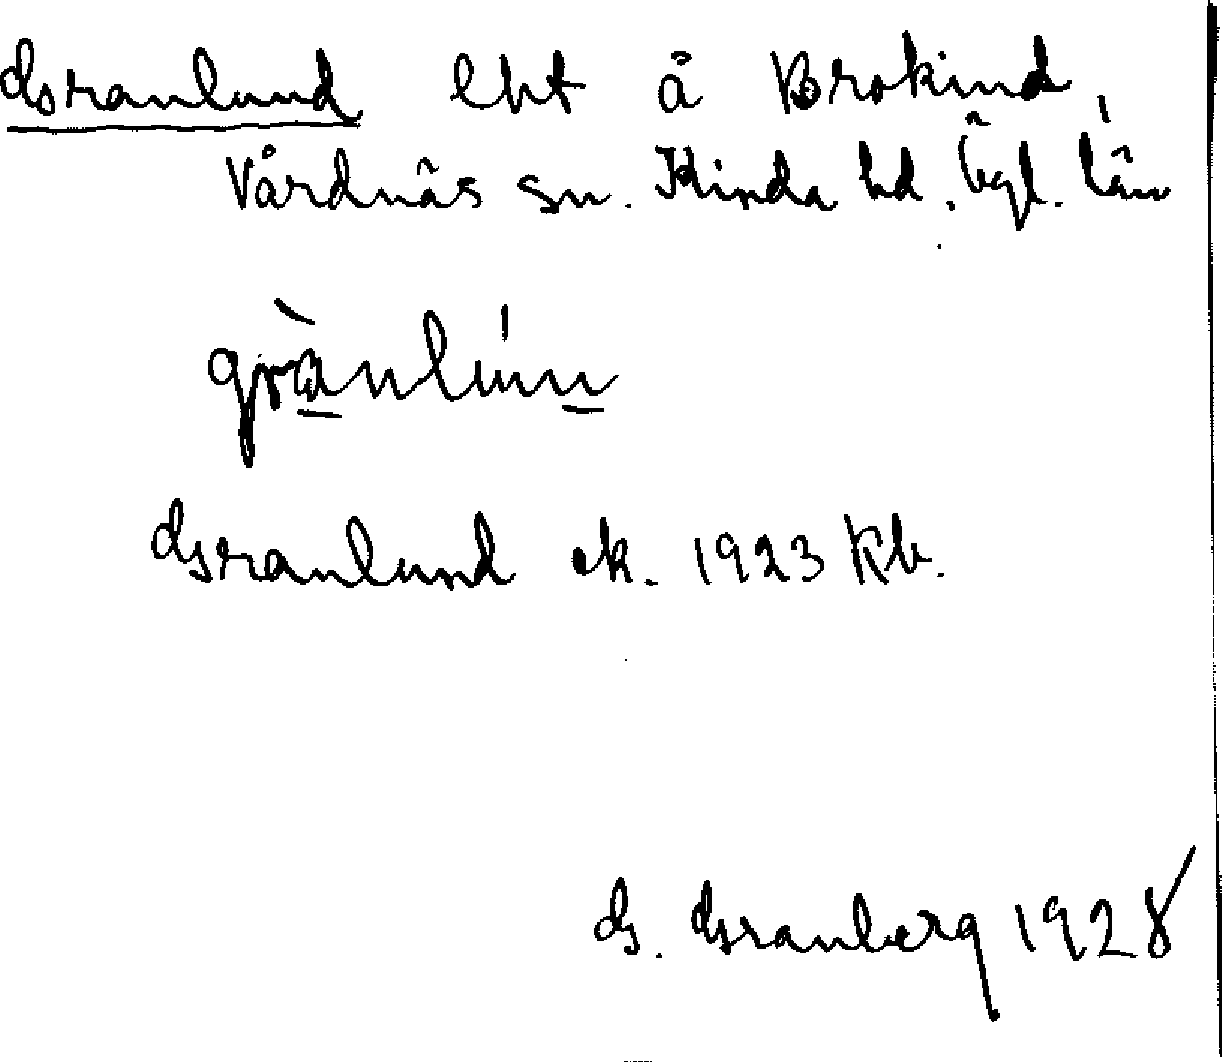 Granlund lht å Brokind,
Vårdnäs sn. Kinda hd. Ögl. län
grànlún
Granlund ek. 1923 Kb.
G. Granberg 1928